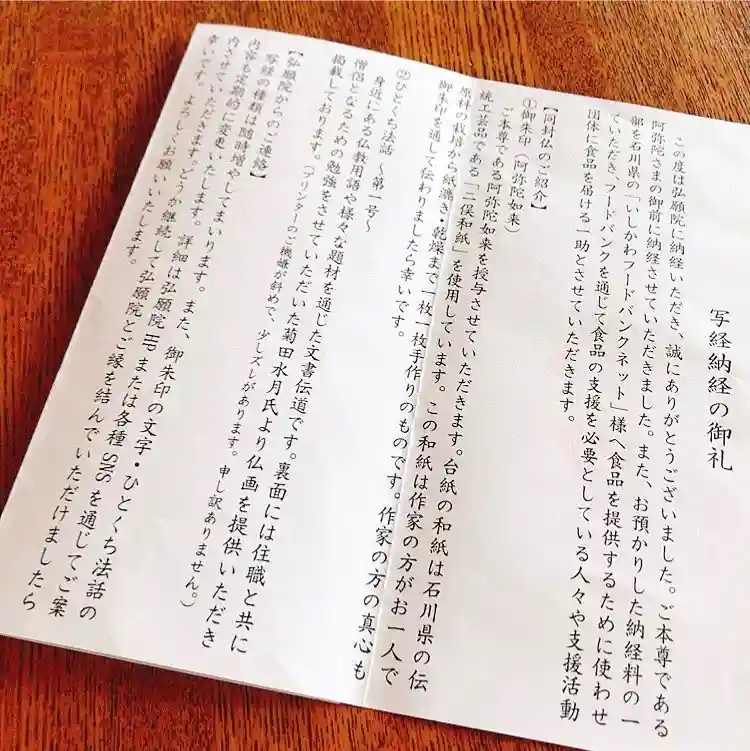 写経納経の御礼
この度は弘願院に納経いただき、誠にありがとうございました。ご本尊である
阿弥陀さまの御前に納経させていただきました。また、お預かりした納経料の一
部を石川県の「いしかわフードバンクネット」様へ食品を提供するために使わせ
ていただき、フードバンクを通じて食品の支援を必要としている人々や支援活動
団体に食品を届ける一助とさせていただきます。
【同封仏のご紹介】
①御朱印（阿弥陀如来）
ご本尊である阿弥陀如来を授与させていただきます。台紙の和紙は石川県の伝
統工芸品である「二俣和紙」を使用しています。この和紙は作家の方がお一人で
原料の栽培から紙漉き・乾燥まで一枚一枚手作りのものです。作家の方の真心も
御朱印を通して伝わりましたら幸いです。
②ひとくち法話 ～第一号～
身近にある仏教用語や様々な題材を通じた文書伝道です。裏面には住職と共に
僧侶となるための勉強をさせていただいた菊田水月氏より仏画を提供いただき
掲載しております。（プリンターのご機嫌が斜めで、少しズレがあります。申し訳ありません。）
【弘願院からのご連絡】
写経の種類は随時増やしてまいります。また、御朱印の文字・ひとくち法話の
内容も定期的に変更いたします。詳細は弘願院HPまたは各種SNSを通じてご案
内させていただきます。どうか継続して、弘願院とご縁を結んでいただけましたら
幸いです。よろしくお願いいたします。